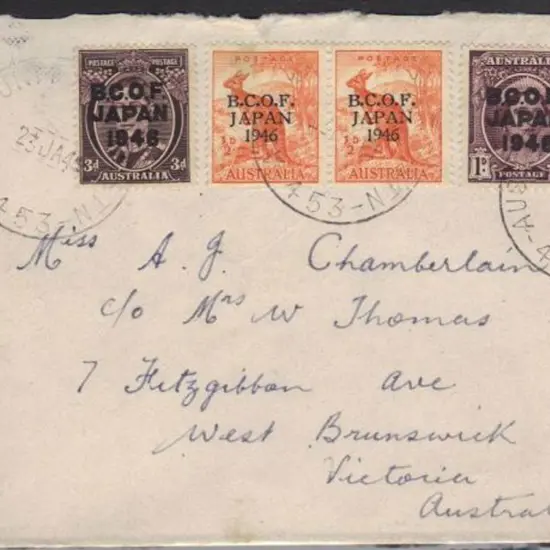 POSTAGE POSTAGE
B.C.O.F.
JAPAN
1946
3d 3d
AUSTRALIA
POSTAGE
B.C.O.F.
JAPAN
1946
½D
AUSTRALIA
POSTAGE
B.C.O.F.
JAPAN
1946
½D
AUSTRALIA
AUSTRALIA
B.C.O.F.
JAPAN
1946
1D
POSTAGE
453-
453-
Miss A. J. Chamberlain
c/o Mrs W Thomas
7 Fitzgibbon Ave
West Brunswick
Victoria
Austral